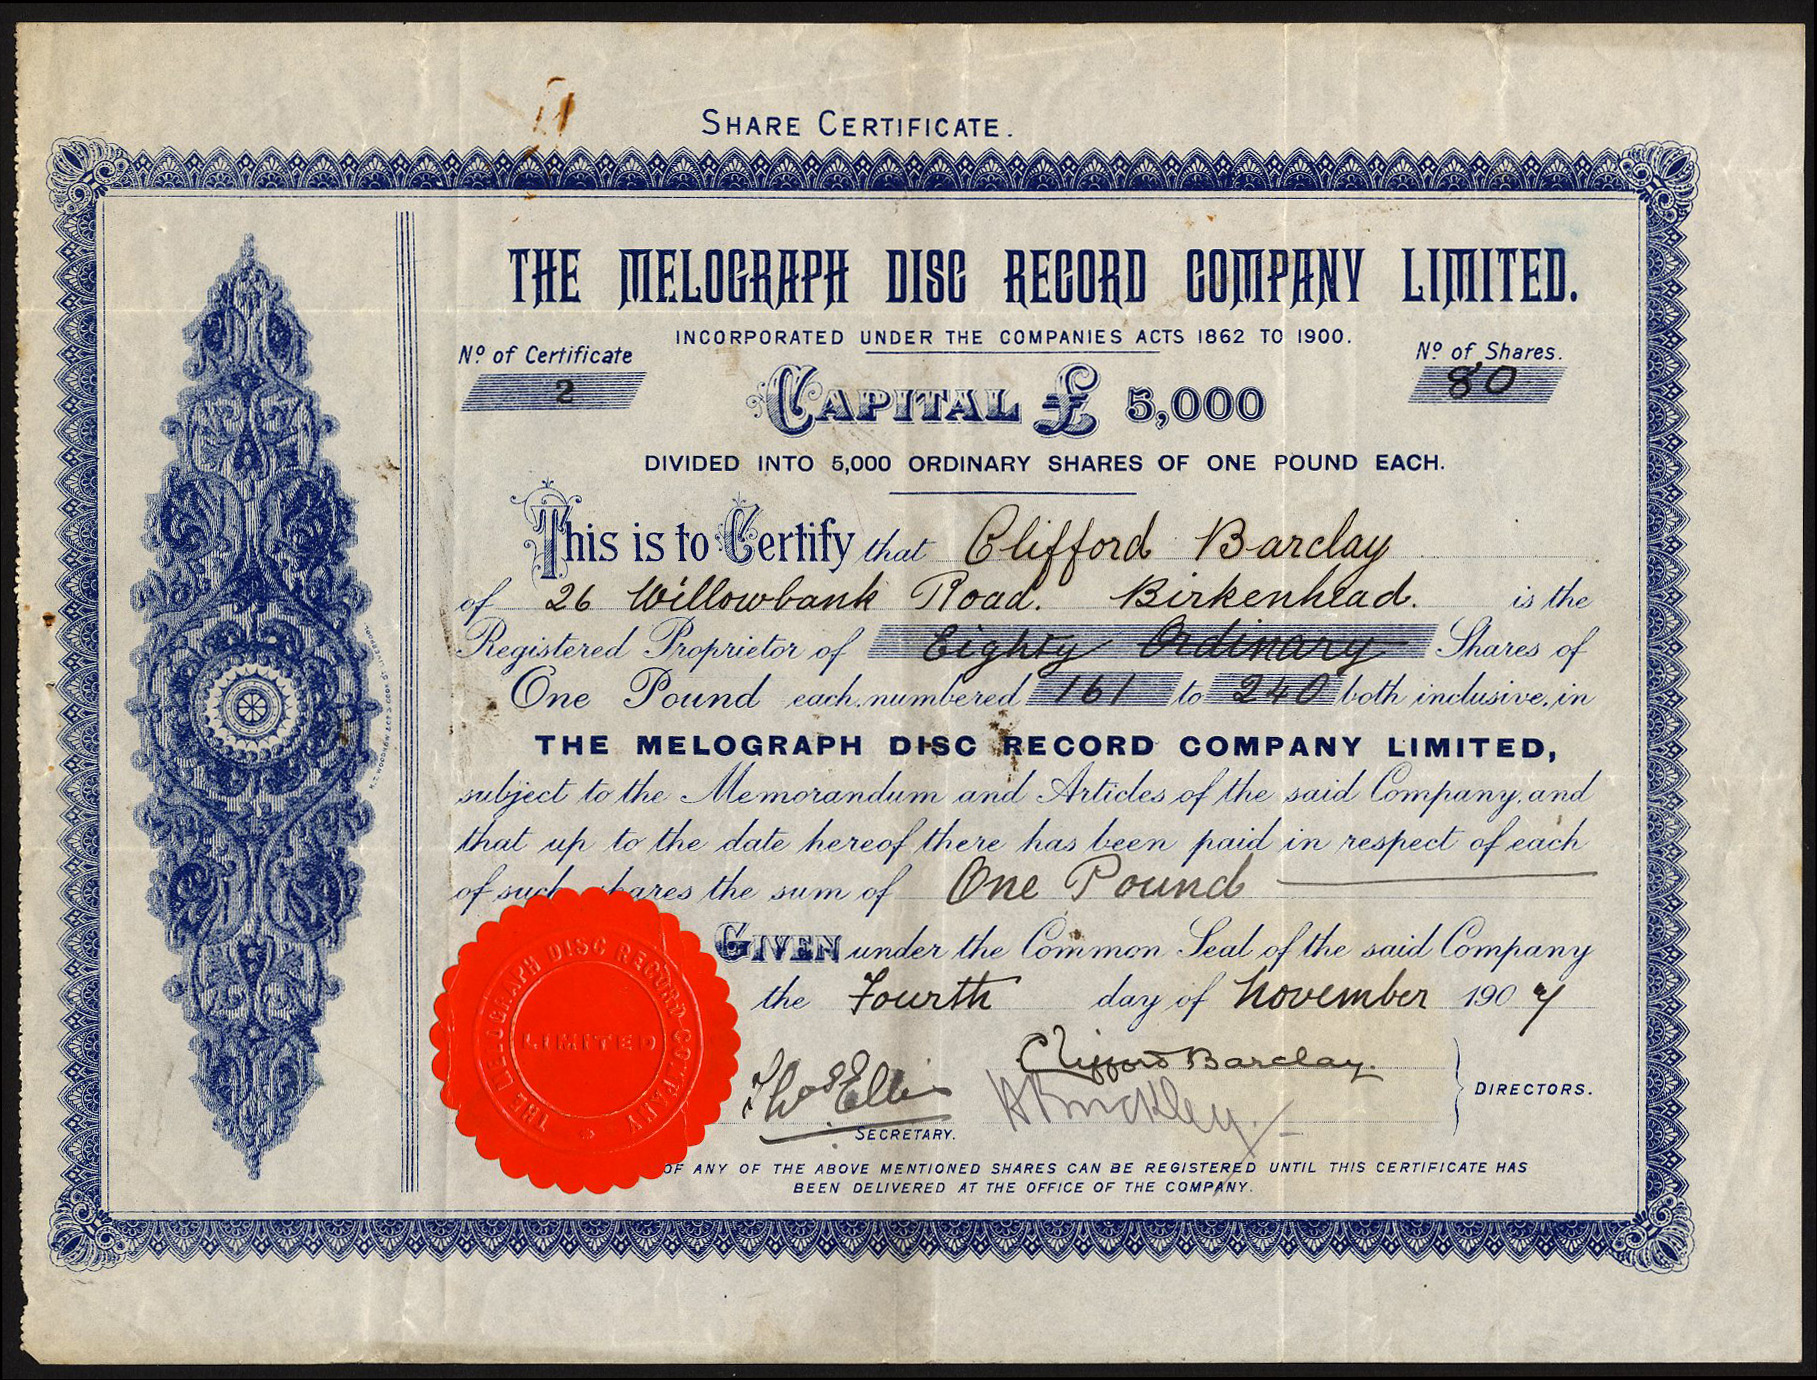 SHARE CERTIFICATE.
THE MELOGRAPH DISC RECORD COMPANY LIMITED.
INCORPORATED UNDER THE COMPANIES ACTS 1862 TO 1900.
Nº of Certificate
2
Nº of Shares.
80
CAPITAL £ 5,000
DIVIDED INTO 5,000 ORDINARY SHARES OF ONE POUND EACH.
This is to Certify that Clifford Barclay
of 26 Willowbank Road. Birkenhead. is the
Registered Proprietor of Eighty Ordinary Shares of
One Pound each, numbered 161 to 240 both inclusive, in
THE MELOGRAPH DISC RECORD COMPANY LIMITED,
subject to the Memorandum and Articles of the said Company, and
that up to the date hereof there has been paid in respect of each
of such shares the sum of One Pound
GIVEN under the Common Seal of the said Company
the Fourth day of November 1907
Thos Ellis
SECRETARY.
Clifford Barclay.
H Bruckley
DIRECTORS.
OF ANY OF THE ABOVE MENTIONED SHARES CAN BE REGISTERED UNTIL THIS CERTIFICATE HAS
BEEN DELIVERED AT THE OFFICE OF THE COMPANY.
THE MELOGRAPH DISC RECORD COMPANY
LIMITED